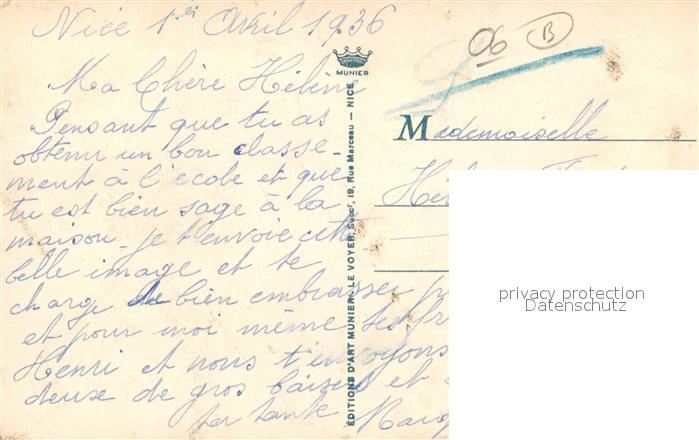 Nice 1er Avril 1936
06 B
MUNIER
Ma Chère Hélène
Pensant que tu as
obtenu un bon classe-
ment à l'école et que
tu est bien sage à la
maison - je t'envoie cette
belle image et te
charge de bien embrasser
et pour moi même tes
Henri et nous t'envoyons
deux de gros baisers et
ta tante
ÉDITIONS D'ART MUNIER - LE VOYER, Succr, 19, Rue Marceau — NICE
Mademoiselle
privacy protection
Datenschutz